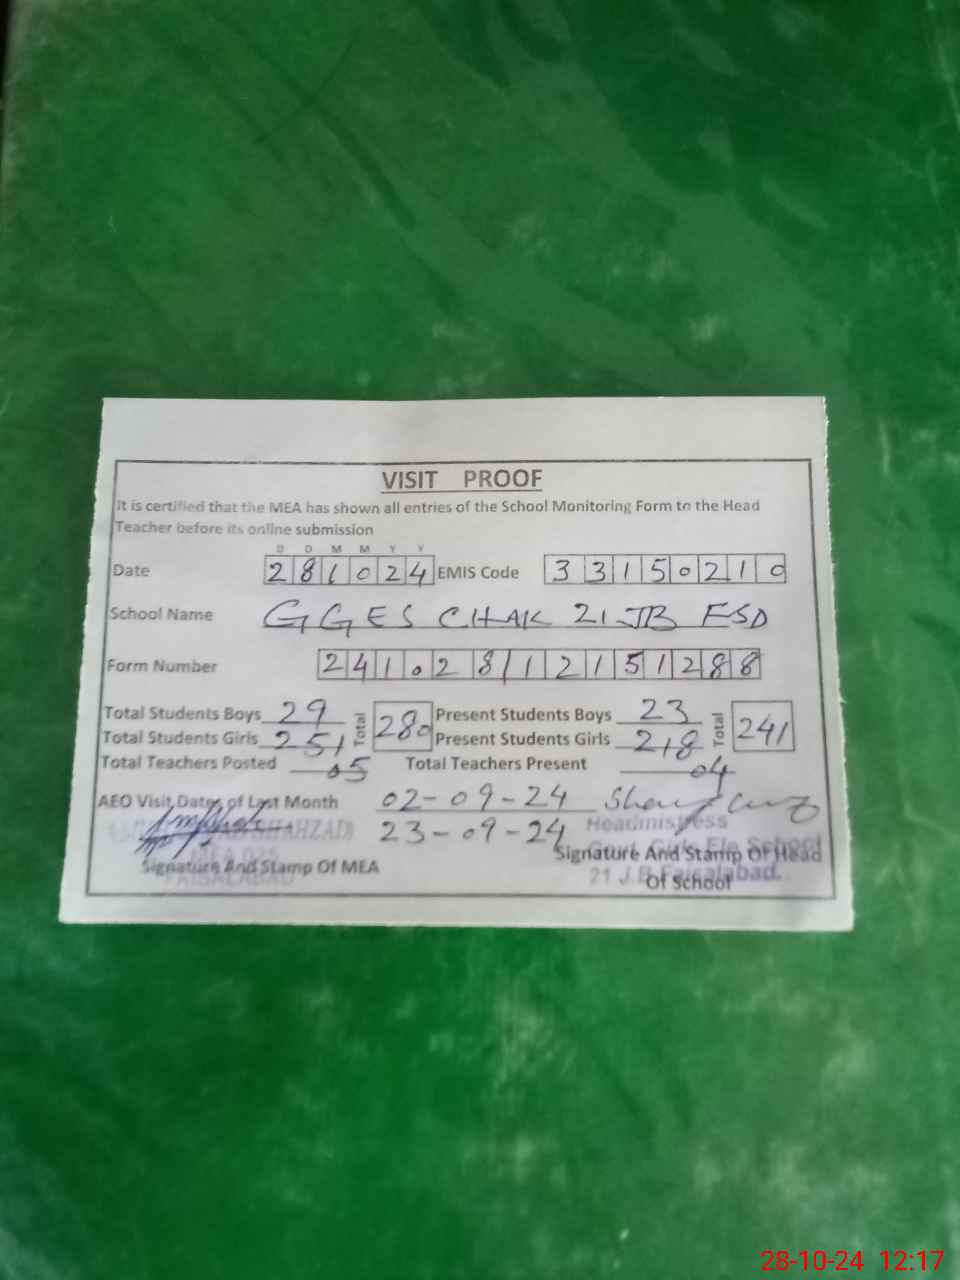 VISIT PROOF
It is certified that the MEA has shown all entries of the School Monitoring Form to the Head
Teacher before its online submission
D D M M Y Y
Date 281024 EMIS Code 33150210
School Name GGES CHAK 21 JB FSD
Form Number 241028112151288
Total Students Boys 29 Total 280 Present Students Boys 23 Total 241
Total Students Girls 251 Present Students Girls 218
Total Teachers Posted 05 Total Teachers Present 04
AEO Visit Dates of Last Month 02-09-24
SHAHZAD) 23-09-24 Headmistress
Govt. Girls Ele School
Signature And Stamp Of MEA Signature And Stamp Of Head
Of School
FAISALABAD 21 J.B Faisalabad.
28-10-24 12:17